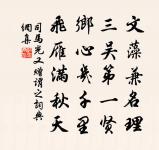 文藻兼名理
三吳第一賢
鄉心幾千里
飛雁滿秋天
司馬光又贈謂之詞典
網集